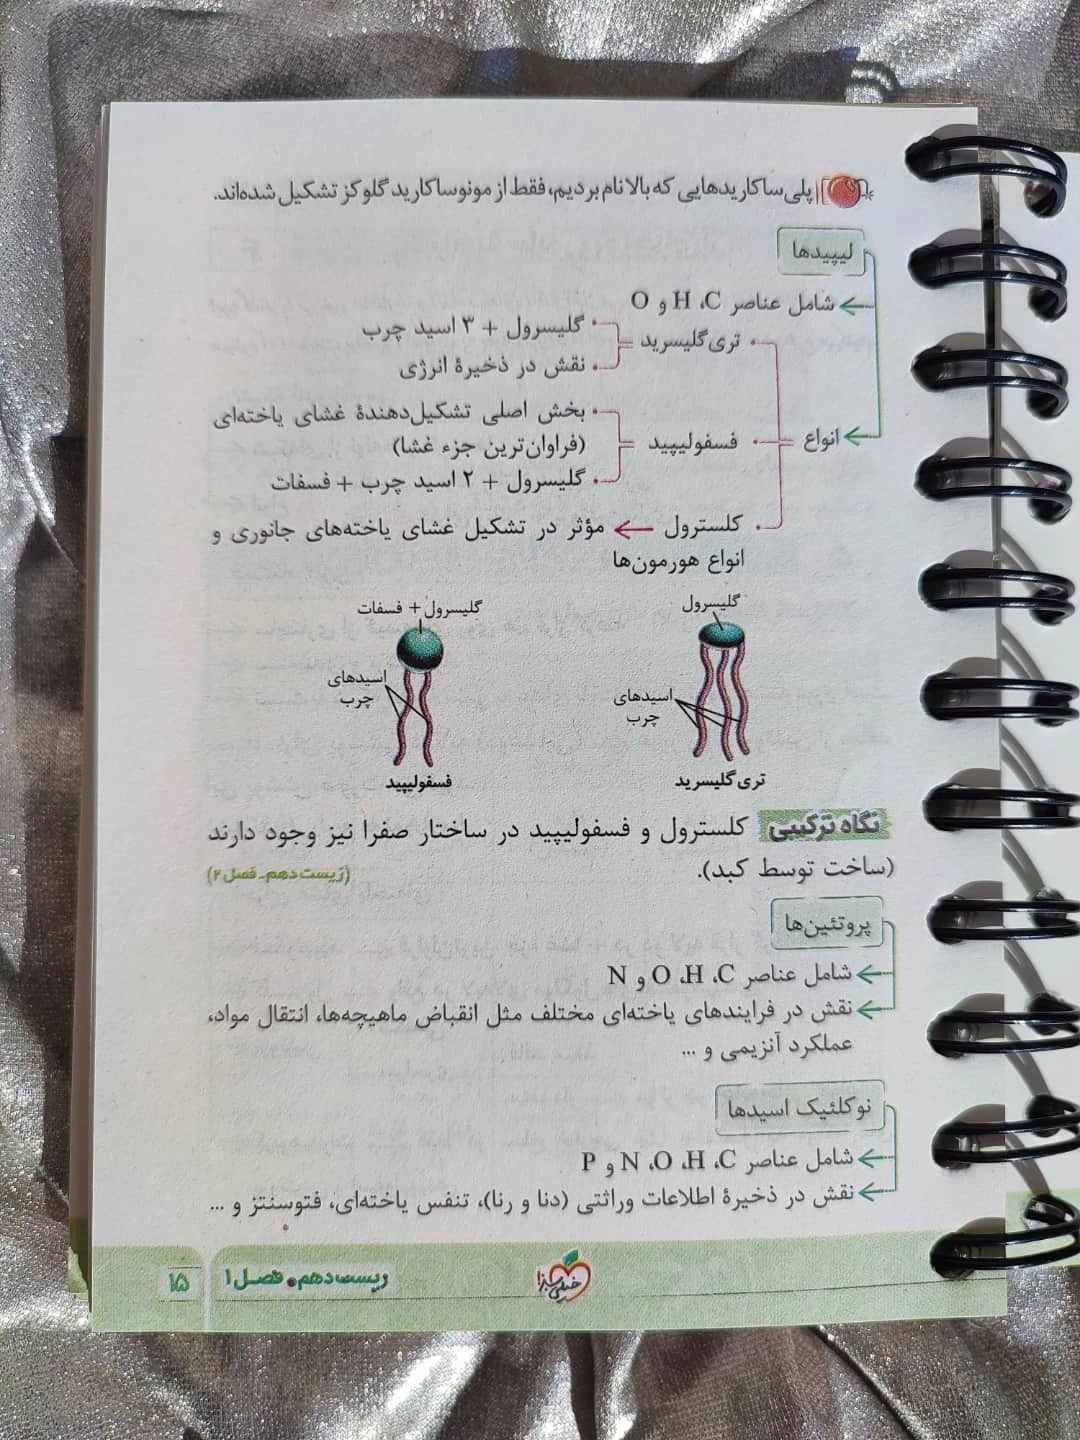 پلی‌ساکاریدهایی که بالا نام بردیم، فقط از مونوساکارید گلوکز تشکیل شده‌اند.
لیپیدها
شامل عناصر C، H و O
تری‌گلیسرید
گلیسرول + ۳ اسید چرب
نقش در ذخیرهٔ انرژی
انواع
فسفولیپید
بخش اصلی تشکیل‌دهندهٔ غشای یاخته‌ای
(فراوان‌ترین جزء غشا)
گلیسرول + ۲ اسید چرب + فسفات
کلسترول ← مؤثر در تشکیل غشای یاخته‌های جانوری و
انواع هورمون‌ها
گلیسرول
اسیدهای
چرب
تری‌گلیسرید
گلیسرول + فسفات
اسیدهای
چرب
فسفولیپید
نگاه ترکیبی کلسترول و فسفولیپید در ساختار صفرا نیز وجود دارند
(ساخت توسط کبد). (زیست دهم - فصل ۲)
پروتئین‌ها
شامل عناصر C، H، O و N
نقش در فرایندهای یاخته‌ای مختلف مثل انقباض ماهیچه‌ها، انتقال مواد،
عملکرد آنزیمی و ...
نوکلئیک اسیدها
شامل عناصر C، H، O، N و P
نقش در ذخیرهٔ اطلاعات وراثتی (دنا و رنا)، تنفس یاخته‌ای، فتوسنتز و ...
خیلی سبز
زیست دهم • فصل ۱
۱۵